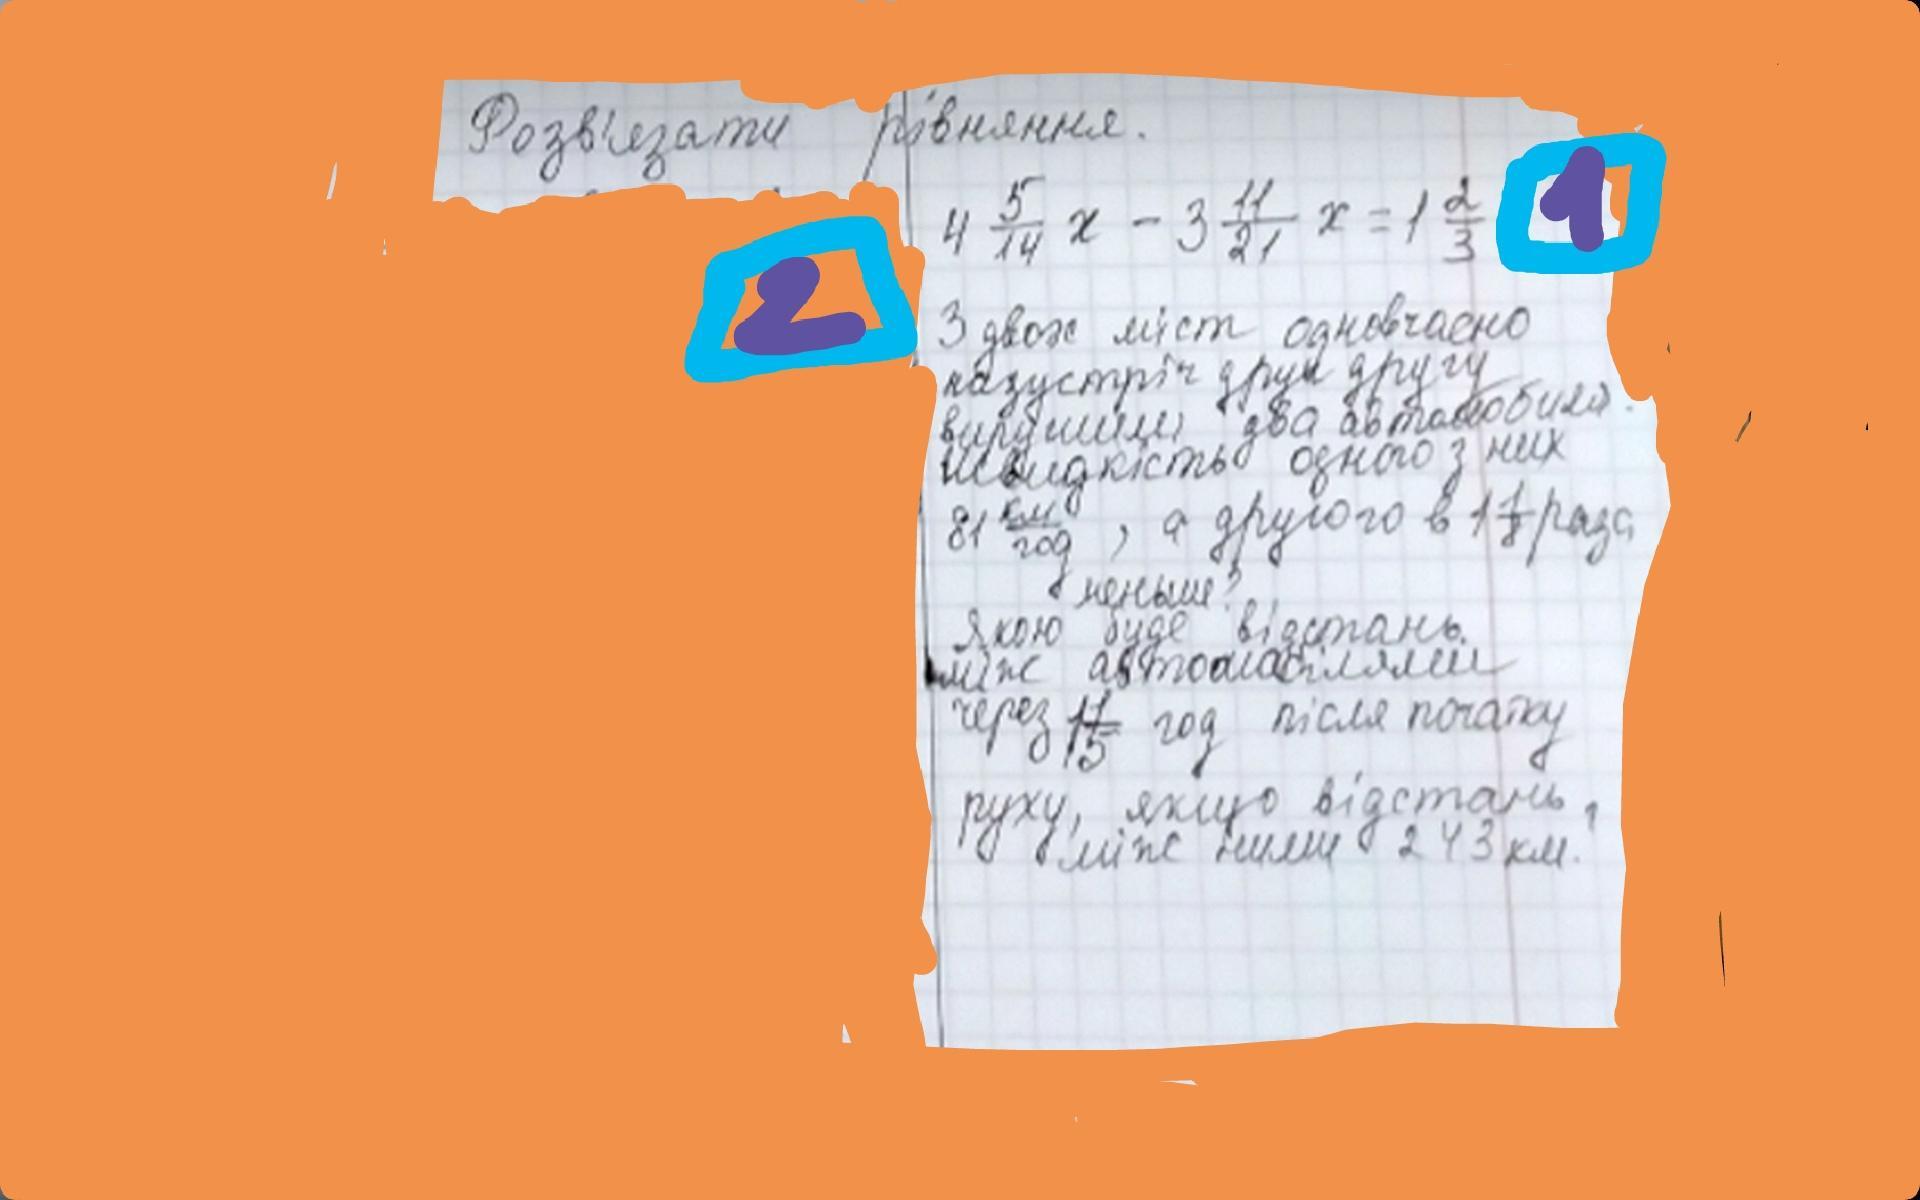 Розв'язати рівняння.
4 5/14 x - 3 11/21 x = 1 2/3
1
2
З двох міст одночасно
назустріч друг другу
вирушили два автомобиля.
Швидкість одного з них
81 км/год, а другого в 1 1/8 раза
меньше?
Якою буде відстань
між автомобілями
через 11/15 год після початку
руху, якщо відстань,
між ними 243 км.